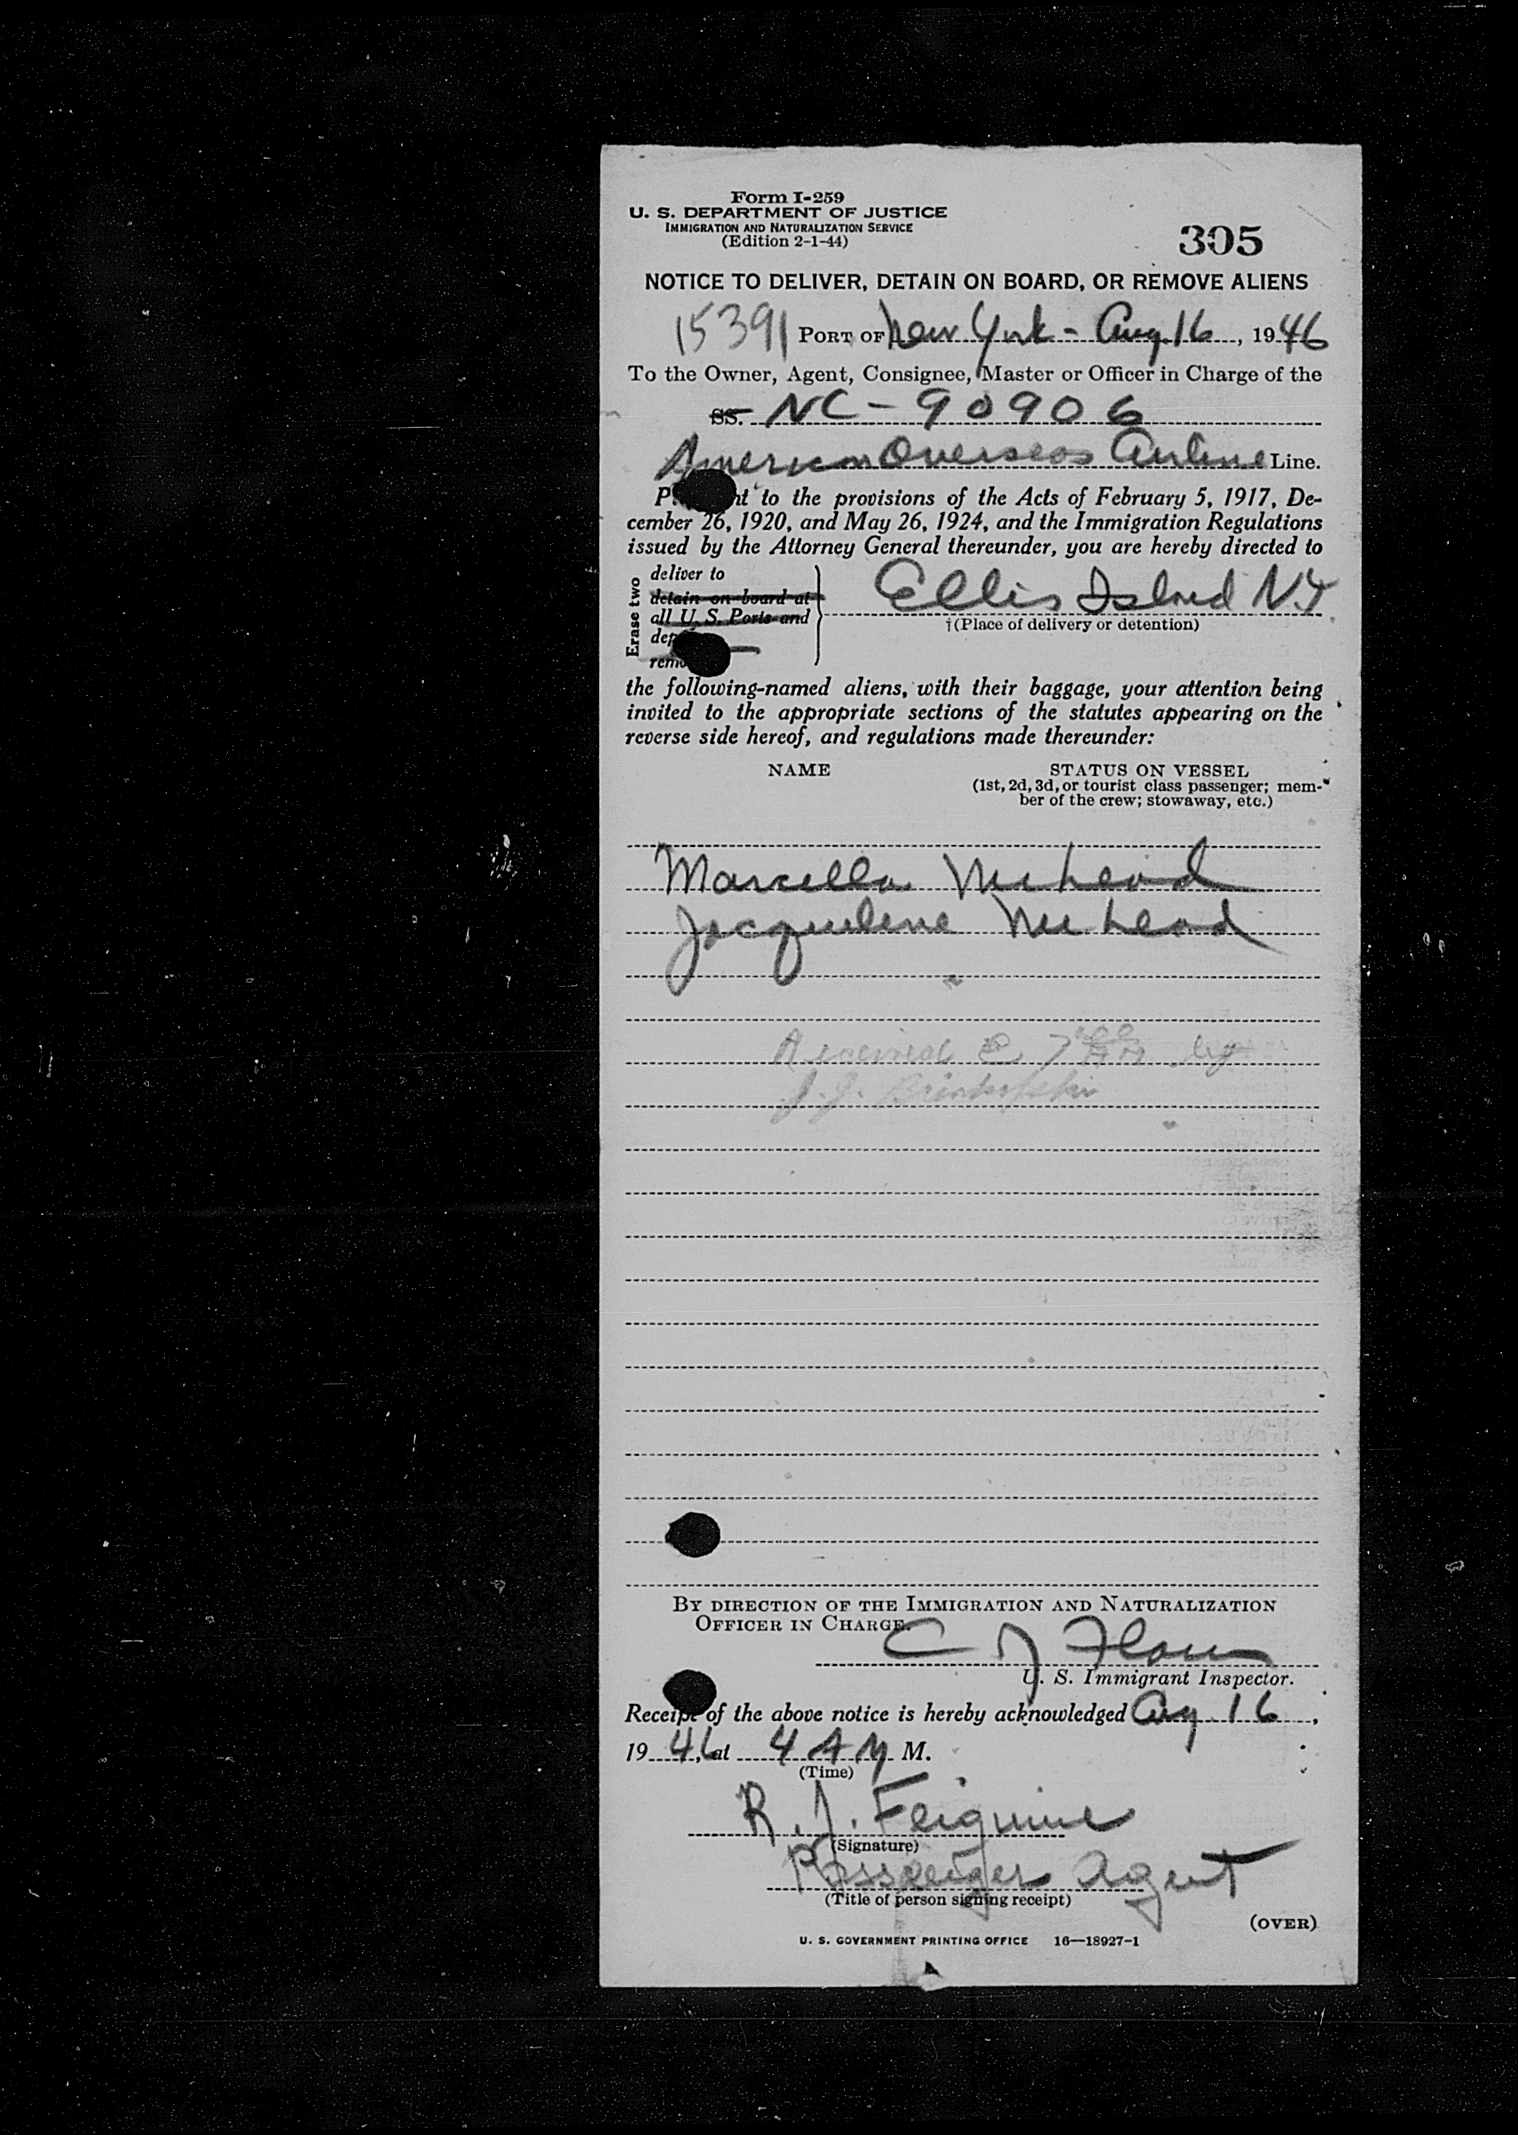 Form I-259
U. S. DEPARTMENT OF JUSTICE
IMMIGRATION AND NATURALIZATION SERVICE
(Edition 2-1-44)
305
NOTICE TO DELIVER, DETAIN ON BOARD, OR REMOVE ALIENS
15391 PORT OF New York - Aug. 16, 1946
To the Owner, Agent, Consignee, Master or Officer in Charge of the
SS. NC-90906
American Overseas Airline Line.
to the provisions of the Acts of February 5, 1917, De-
cember 26, 1920, and May 26, 1924, and the Immigration Regulations
issued by the Attorney General thereunder, you are hereby directed to
Erase two
deliver to
detain on board at
all U. S. Ports and
Ellis Island N.Y
†(Place of delivery or detention)
the following-named aliens, with their baggage, your attention being
invited to the appropriate sections of the statutes appearing on the
reverse side hereof, and regulations made thereunder:
NAME STATUS ON VESSEL
(1st, 2d, 3d, or tourist class passenger; mem-
ber of the crew; stowaway, etc.)
Marcella McLeod
Jacqueline McLeod
Received @ by
J. J.
BY DIRECTION OF THE IMMIGRATION AND NATURALIZATION
OFFICER IN CHARGE.
C J
U. S. Immigrant Inspector.
Receipt of the above notice is hereby acknowledged Aug. 16,
1946, at 4 AM M.
(Time)
R. J. Feiguine
(Signature)
Passenger Agent
(Title of person signing receipt)
(OVER)
U. S. GOVERNMENT PRINTING OFFICE 16—18927-1